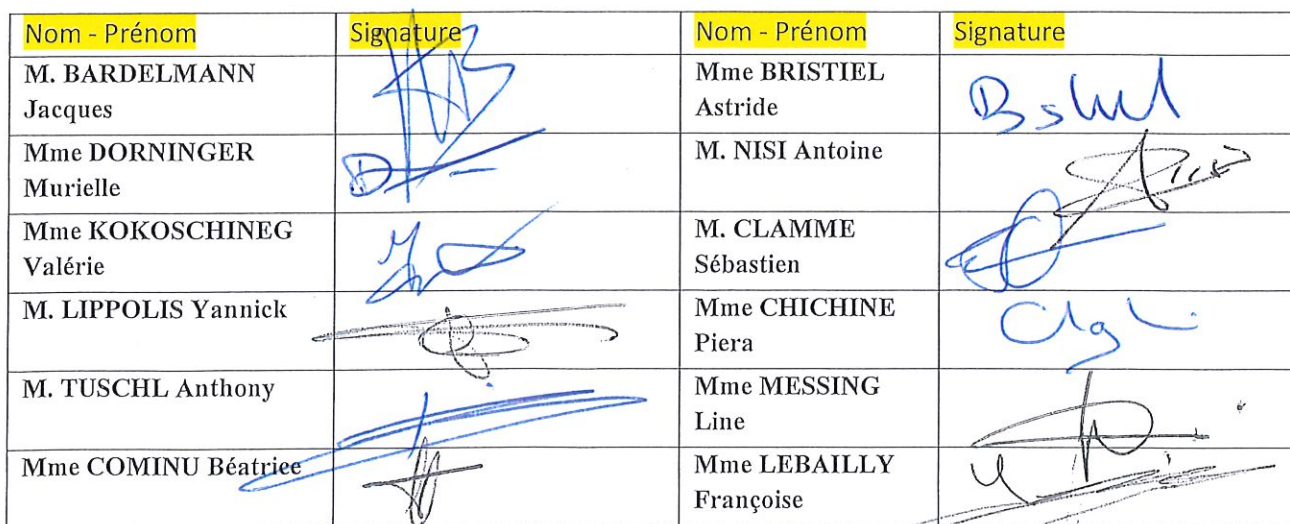 Nom - Prénom Signature Nom - Prénom Signature
M. BARDELMANN Mme BRISTIEL
Jacques Astride
Mme DORNINGER M. NISI Antoine
Murielle
Mme KOKOSCHINEG M. CLAMME
Valérie Sébastien
M. LIPPOLIS Yannick Mme CHICHINE
Piera
M. TUSCHL Anthony Mme MESSING
Line
Mme COMINU Béatrice Mme LEBAILLY
Françoise